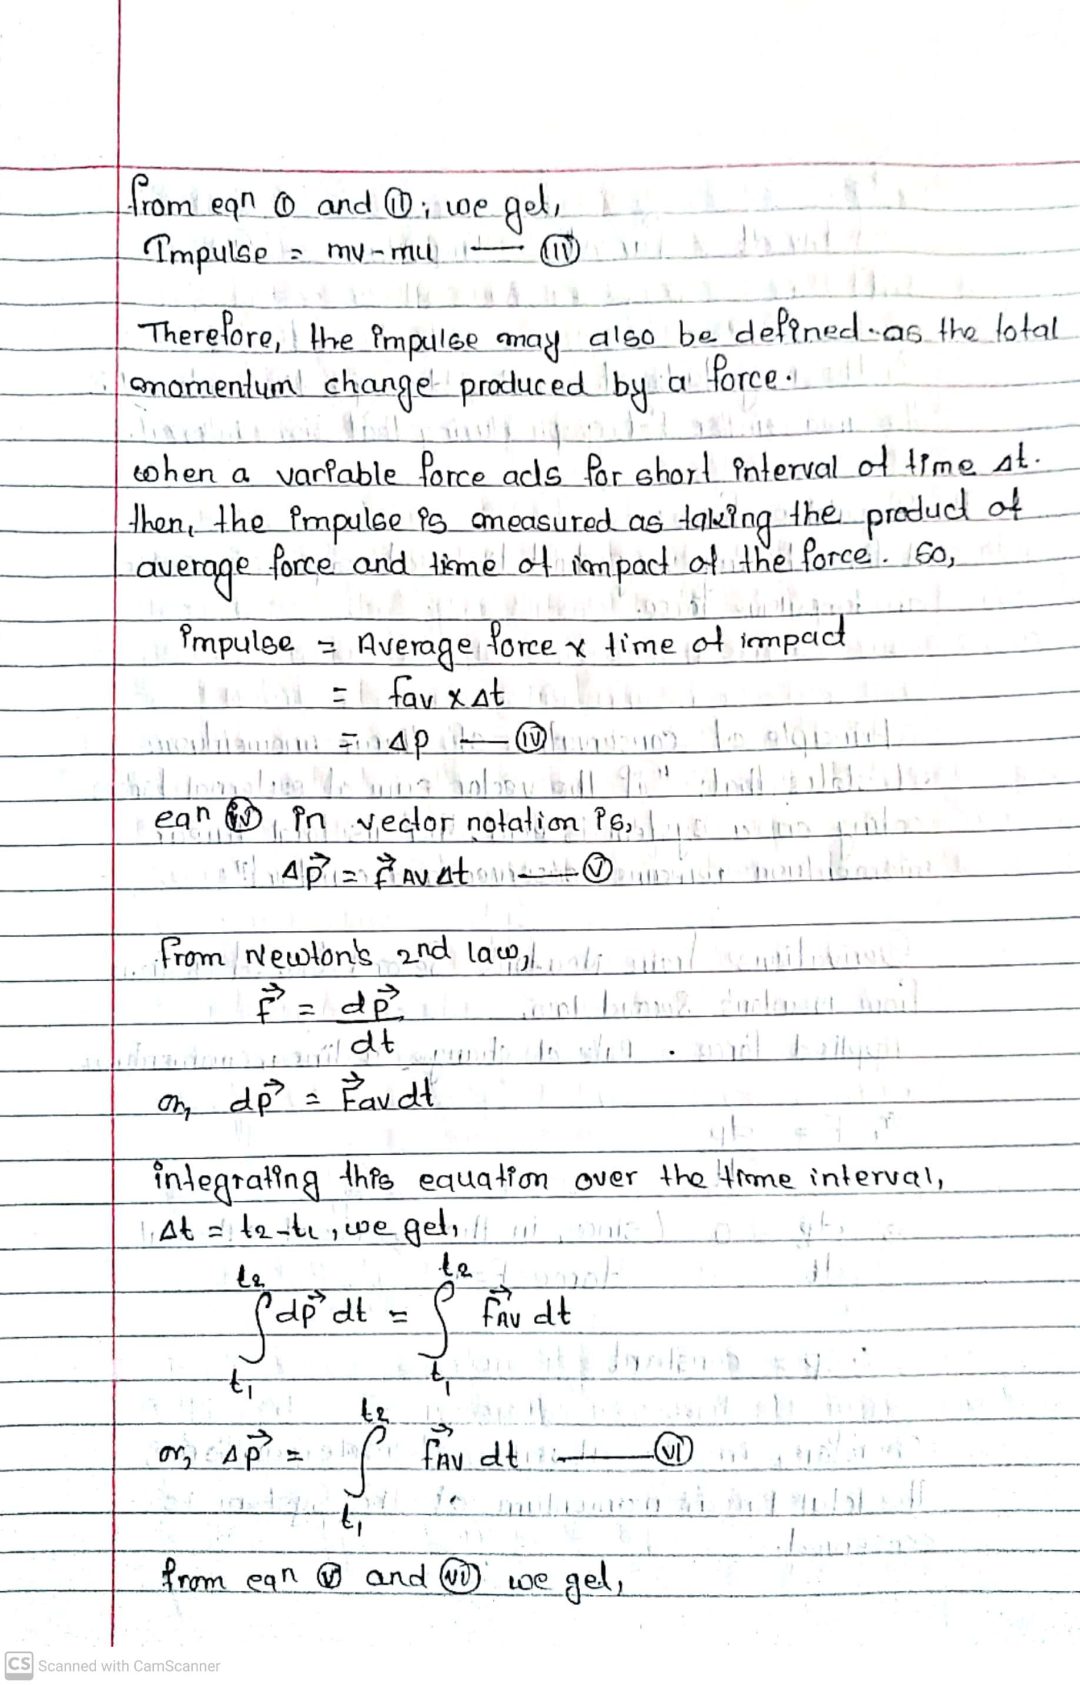 from eqn ⓘ and ⓘⓘ; we get,
Impulse = mv-mu —— (iii)
Therefore, the impulse may also be defined as the total
momentum change produced by a force.
when a variable force acts for short interval of time Δt.
then, the impulse is measured as taking the product of
average force and time of impact of the force. So,
impulse = Average force x time of impact
= fav x Δt
= Δp —— (iv)
eqn (iv) in vector notation is,
Δp⃗ = F⃗ AV Δt —— (v)
from Newton's 2nd law,
F⃗ = dp⃗
dt
or, dp⃗ = F⃗av dt
integrating this equation over the time interval,
Δt = t2-t1, we get,
t2 t2
∫dp⃗ dt = ∫ F⃗AV dt
t1 t1
t2
or, Δp⃗ = ∫ F⃗AV dt —— (vi)
t1
from eqn (v) and (vi) we get,
CS Scanned with CamScanner